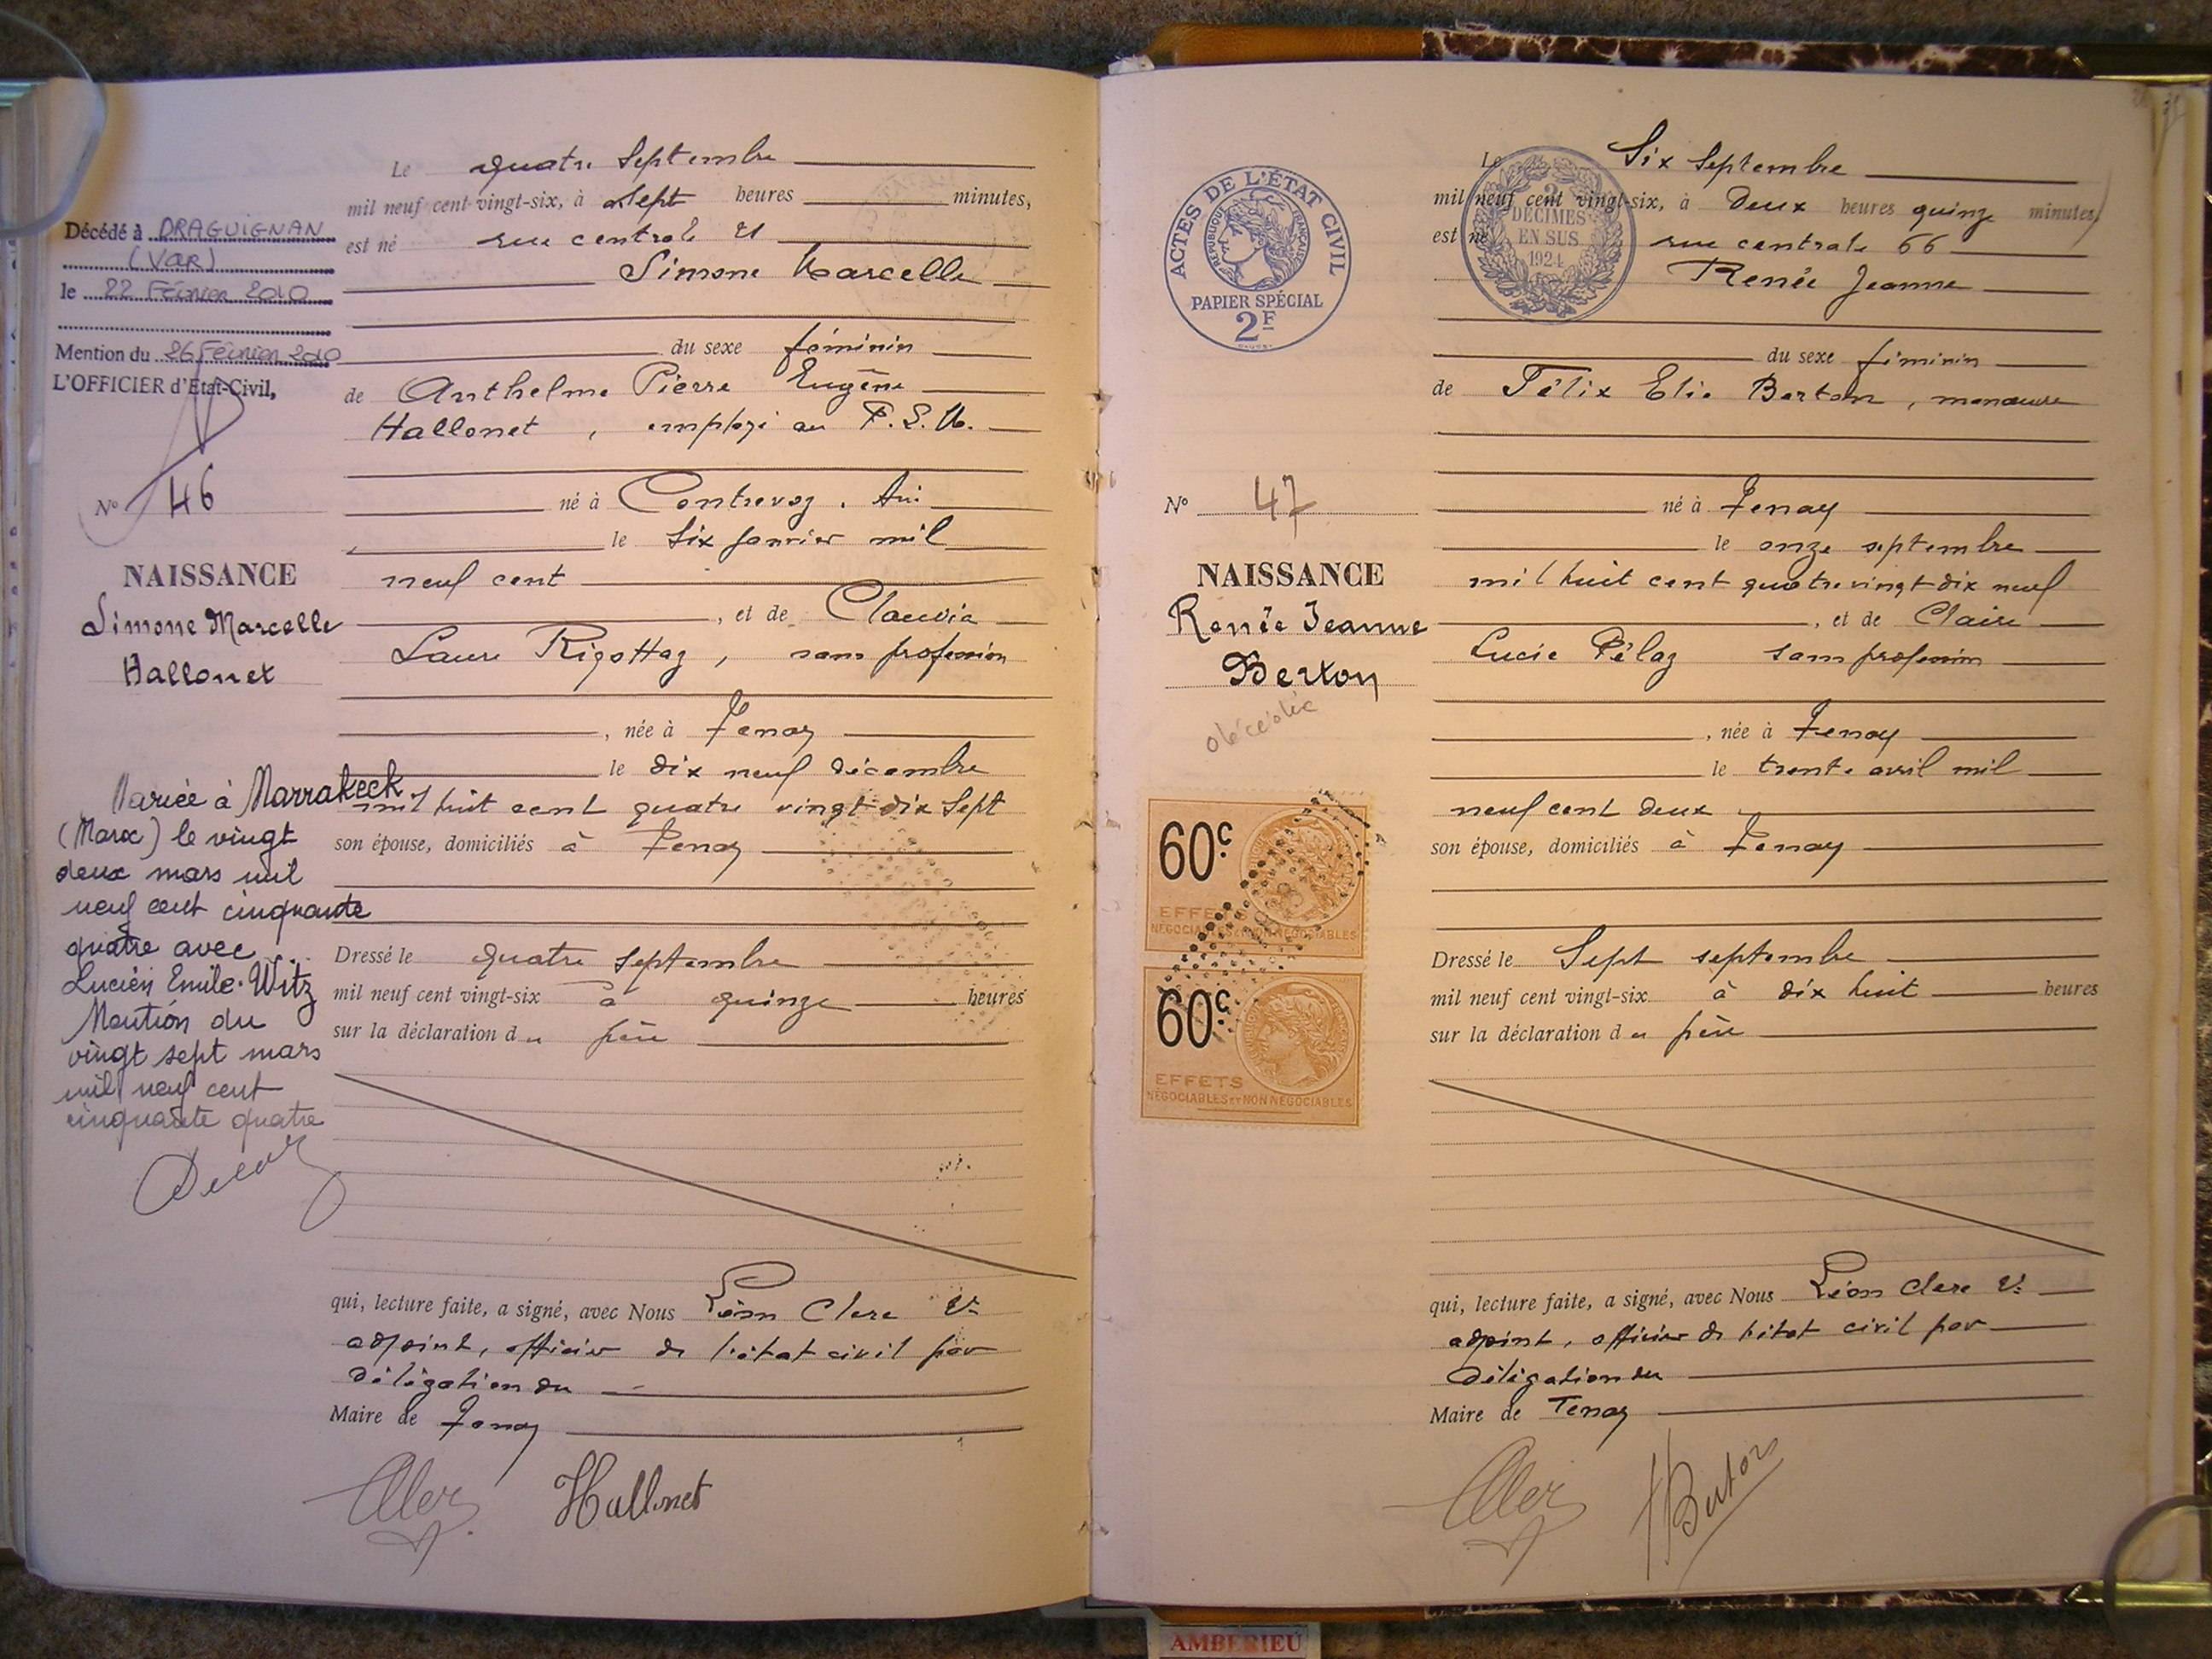 Décédé à DRAGUIGNAN
(VAR)
le 22 Février 2010
Mention du 26 Février 2010
L'OFFICIER d'État-Civil,
N° 46
NAISSANCE
Simone Marcelle
Hallonet
Mariée à Marrakeck
(Maroc) le vingt
deux mars mil
neuf cent cinquante
quatre avec
Lucien Emile Witz
Mention du
vingt sept mars
mil neuf cent
cinquante quatre
Le quatre Septembre
mil neuf cent vingt-six, à sept heures minutes,
est né rue centrale
Simone Marcelle
du sexe féminin
de Anthelme Pierre Eugène
Hallonet, employé au P.L.M.
né à Contrevoz, Ain
le six janvier mil
neuf cent
, et de Claudia
Laure Rigottaz, sans profession
, née à Tenay
le dix neuf décembre
mil huit cent quatre vingt-dix sept
son épouse, domiciliés à Tenay
Dressé le quatre septembre
mil neuf cent vingt-six à quinze heures
sur la déclaration du père
qui, lecture faite, a signé, avec Nous Léon Clerc
adjoint, officier de l'état civil par
délégation du
Maire de Tenay
Hallonet
ACTES DE L'ÉTAT CIVIL
RÉPUBLIQUE FRANÇAISE
PAPIER SPÉCIAL
2F
N° 47
NAISSANCE
Renée Jeanne
Berton
décédée
60c
EFFETS
NÉGOCIABLES ET NON NÉGOCIABLES
60c
EFFETS
NÉGOCIABLES ET NON NÉGOCIABLES
2
DÉCIMES
EN SUS
1924
Le Six Septembre
mil neuf cent vingt-six, à deux heures quinze minutes,
est né rue centrale 66
Renée Jeanne
du sexe féminin
de Félix Elie Berton, manœuvre
né à Tenay
le onze septembre
mil huit cent quatre vingt-dix neuf
, et de Claire
Lucie Pélaz sans profession
, née à Tenay
le trente avril mil
neuf cent deux
son épouse, domiciliés à Tenay
Dressé le Sept septembre
mil neuf cent vingt-six à dix huit heures
sur la déclaration du père
qui, lecture faite, a signé, avec Nous Léon Clerc
adjoint, officier de l'état civil par
délégation du
Maire de Tenay
Berton
AMBERIEU